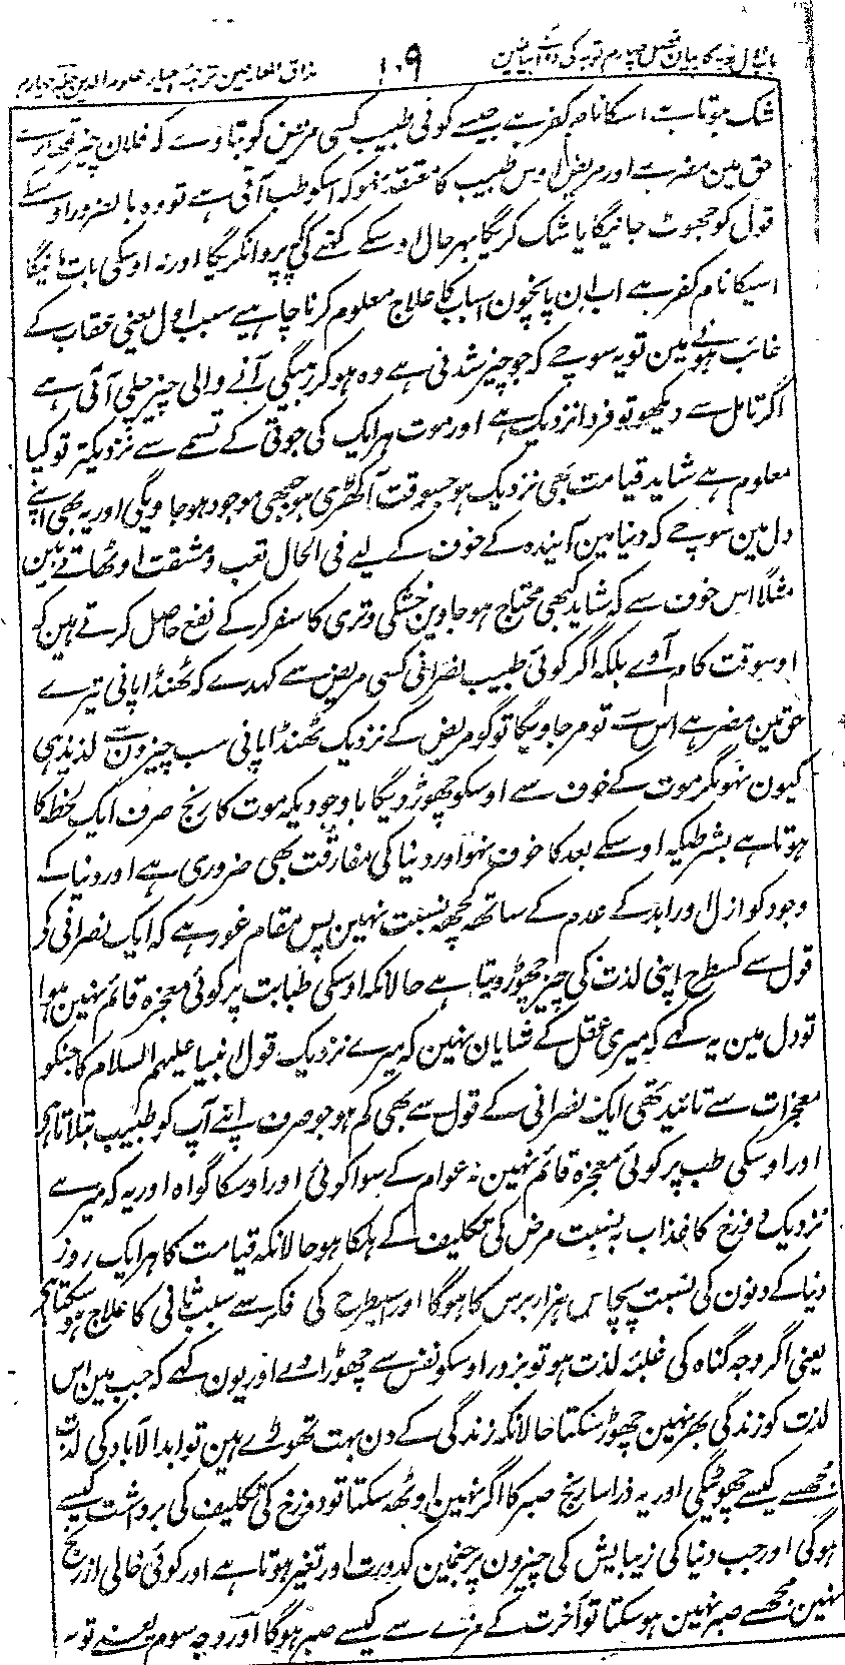 باب اول توبہ کا بیان فصل چہارم توبہ کی دوا کے بیان مین
۱۰۹
مذاق العارفین ترجمہ احیاء علوم الدین جلد چہارم
شک ہوتا ہے اسکا نام کفر ہے جیسے کوئی طبیب کسی مریض کو بتاوے کہ فلان چیز تیرے
حق مین مضر ہے اور مریض اوس طبیب کا معتقد نہو کہ اسکو طب آتی ہے تو وہ بالضرور اوسکے
قول کو جھوٹ جانیگا یا شک کریگا بہر حال اوسکے کہنے کی کچھ پروا نکریگا اور نہ اوسکی بات مانیگا
اسیکا نام کفر ہے اب ان پانچون اسباب کا علاج معلوم کرنا چاہیے سبب اول یعنی عقاب کے
غائب ہونے مین تو یہ سوچے کہ جو چیز شدنی ہے وہ ہو کر رہیگی آنے والی چیز چلی آتی ہے
اگر تامل سے دیکھو تو فردا نزدیک ہے اور موت ہر ایک کی جوتی کے تسمے سے نزدیکتر تو کیا
معلوم ہے شاید قیامت بھی نزدیک ہو جسوقت آکھڑی ہو جبھی موجود ہو جاویگی اور یہ بھی اپنے
دل مین سوچے کہ دنیا مین آیندہ کے خوف کے لیے فی الحال تعب و مشقت اوٹھاتے ہین
مثلاً اس خوف سے کہ شاید کبھی محتاج ہو جاوین خشکی و تری کا سفر کر کے نفع حاصل کرتے ہین کہ
اوسوقت کام آوے بلکہ اگر کوئی طبیب نصرانی کسی مریض سے کہدے کہ ٹھنڈا پانی تیرے
حق مین مضر ہے اس سے تو مر جاویگا تو گو مریض کے نزدیک ٹھنڈا پانی سب چیزون سے لذیذ ہی
کیون نہو مگر موت کے خوف سے اوسکو چھوڑ دیگا باوجودیکہ موت کا رنج صرف ایک لحظہ کا
ہوتا ہے بشرطیکہ اوسکے بعد کا خوف نہو اور دنیا کی مفارقت بھی ضروری ہے اور دنیا کے
وجود کو ازل اور ابد کے عدم کے ساتھ کچھ نسبت نہین پس مقام غور ہے کہ ایک نصرانی کے
قول سے کسطرح اپنی لذت کی چیز چھوڑ دیتا ہے حالانکہ اوسکی طبابت پر کوئی معجزہ قائم نہین ہوا
تو دل مین یہ کہے کہ میری عقل کے شایان نہین کہ میرے نزدیک قول انبیا علیہم السلام کا جنکو
معجزات سے تائید تھی ایک نصرانی کے قول سے بھی کم ہو جو صرف اپنے آپ کو طبیب بتلاتا ہے
اور اوسکی طب پر کوئی معجزہ قائم نہین نہ عوام کے سوا کوئی اور اوسکا گواہ اور یہ کہ میرے
نزدیک دوزخ کا عذاب بہ نسبت مرض کی تکلیف کے ہلکا ہو حالانکہ قیامت کا ہر ایک روز
دنیا کے دنون کی نسبت پچاس ہزار برس کا ہوگا اور اسیطرح کی فکر سے سبب ثانی کا علاج ہو سکتا ہے
یعنی اگر وجہ گناہ کی غلبۂ لذت ہو تو بزور اوسکو نفس سے چھوڑاوے اور یون کہے کہ جب مین اس
لذت کو زندگی بھر نہین چھوڑ سکتا حالانکہ زندگی کے دن بہت تھوڑے ہین تو ابد الآباد کی لذت
مجھسے کیسے چھوٹیگی اور یہ ذرا سا رنج صبر کا اگر نہین اوٹھ سکتا تو دوزخ کی تکلیف کی برداشت کیسے
ہوگی اور جب دنیا کی زیبایش کی چیزون پر جنمین کدورت اور تغیر ہوتا ہے اور کوئی خالی از رنج
نہین مجھسے صبر نہین ہو سکتا تو آخرت کے مزے سے کیسے صبر ہوگا اور وجہ سوم یعنے توبہ